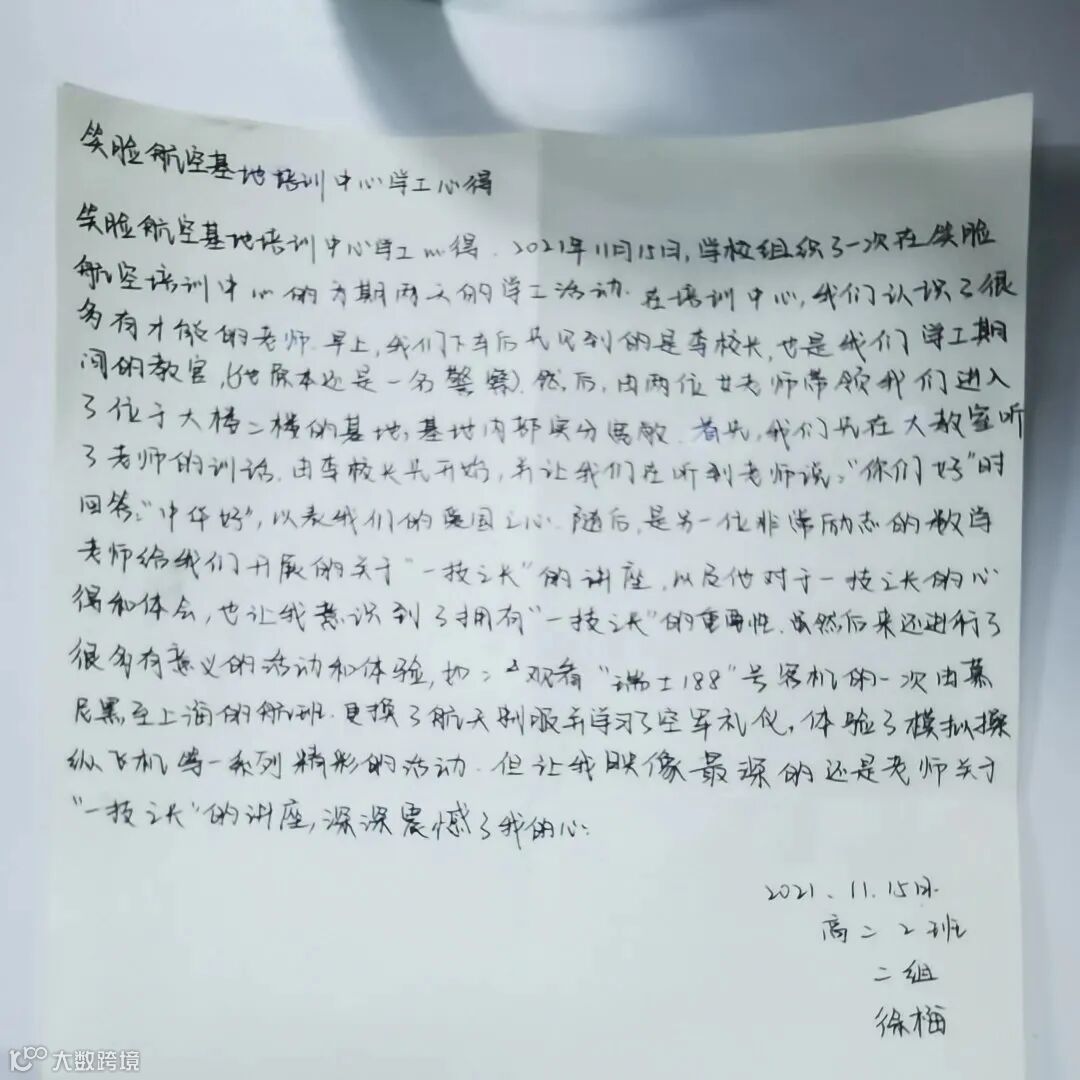 笑脸航空基地培训中心学工心得
笑脸航空基地培训中心学工心得.2021年11月15日,学校组织了一次在笑脸
航空培训中心的为期两天的学工活动.在培训中心,我们认识了很
多有才能的老师.早上,我们下车后先见到的是李校长,也是我们学工期
间的教官,(他原本还是一名警察).然后,由两位女老师带领我们进入
了位于大楼二楼的基地,基地内部十分宽敞.首先,我们先在大教室听
了老师的训话.由李校长先开始,并让我们在听到老师说:“你们好”时
回答:“中华好”,以表我们的爱国之心.随后,是另一位非常励志的数学
老师给我们开展的关于“一技之长”的讲座,以及他对于一技之长的心
得和体会,也让我意识到了拥有“一技之长”的重要性.虽然后来还进行了
很多有意义的活动和体验,如:观看“瑞士188”号客机的一次由慕
尼黑至上海的航班.更换了航天制服并学习了空军礼仪,体验了模拟操
纵飞机等一系列精彩的活动.但让我映像最深的还是老师关于
“一技之长”的讲座,深深震憾了我的心.
2021.11.15日.
高二2班
二组
徐梅
大数跨境